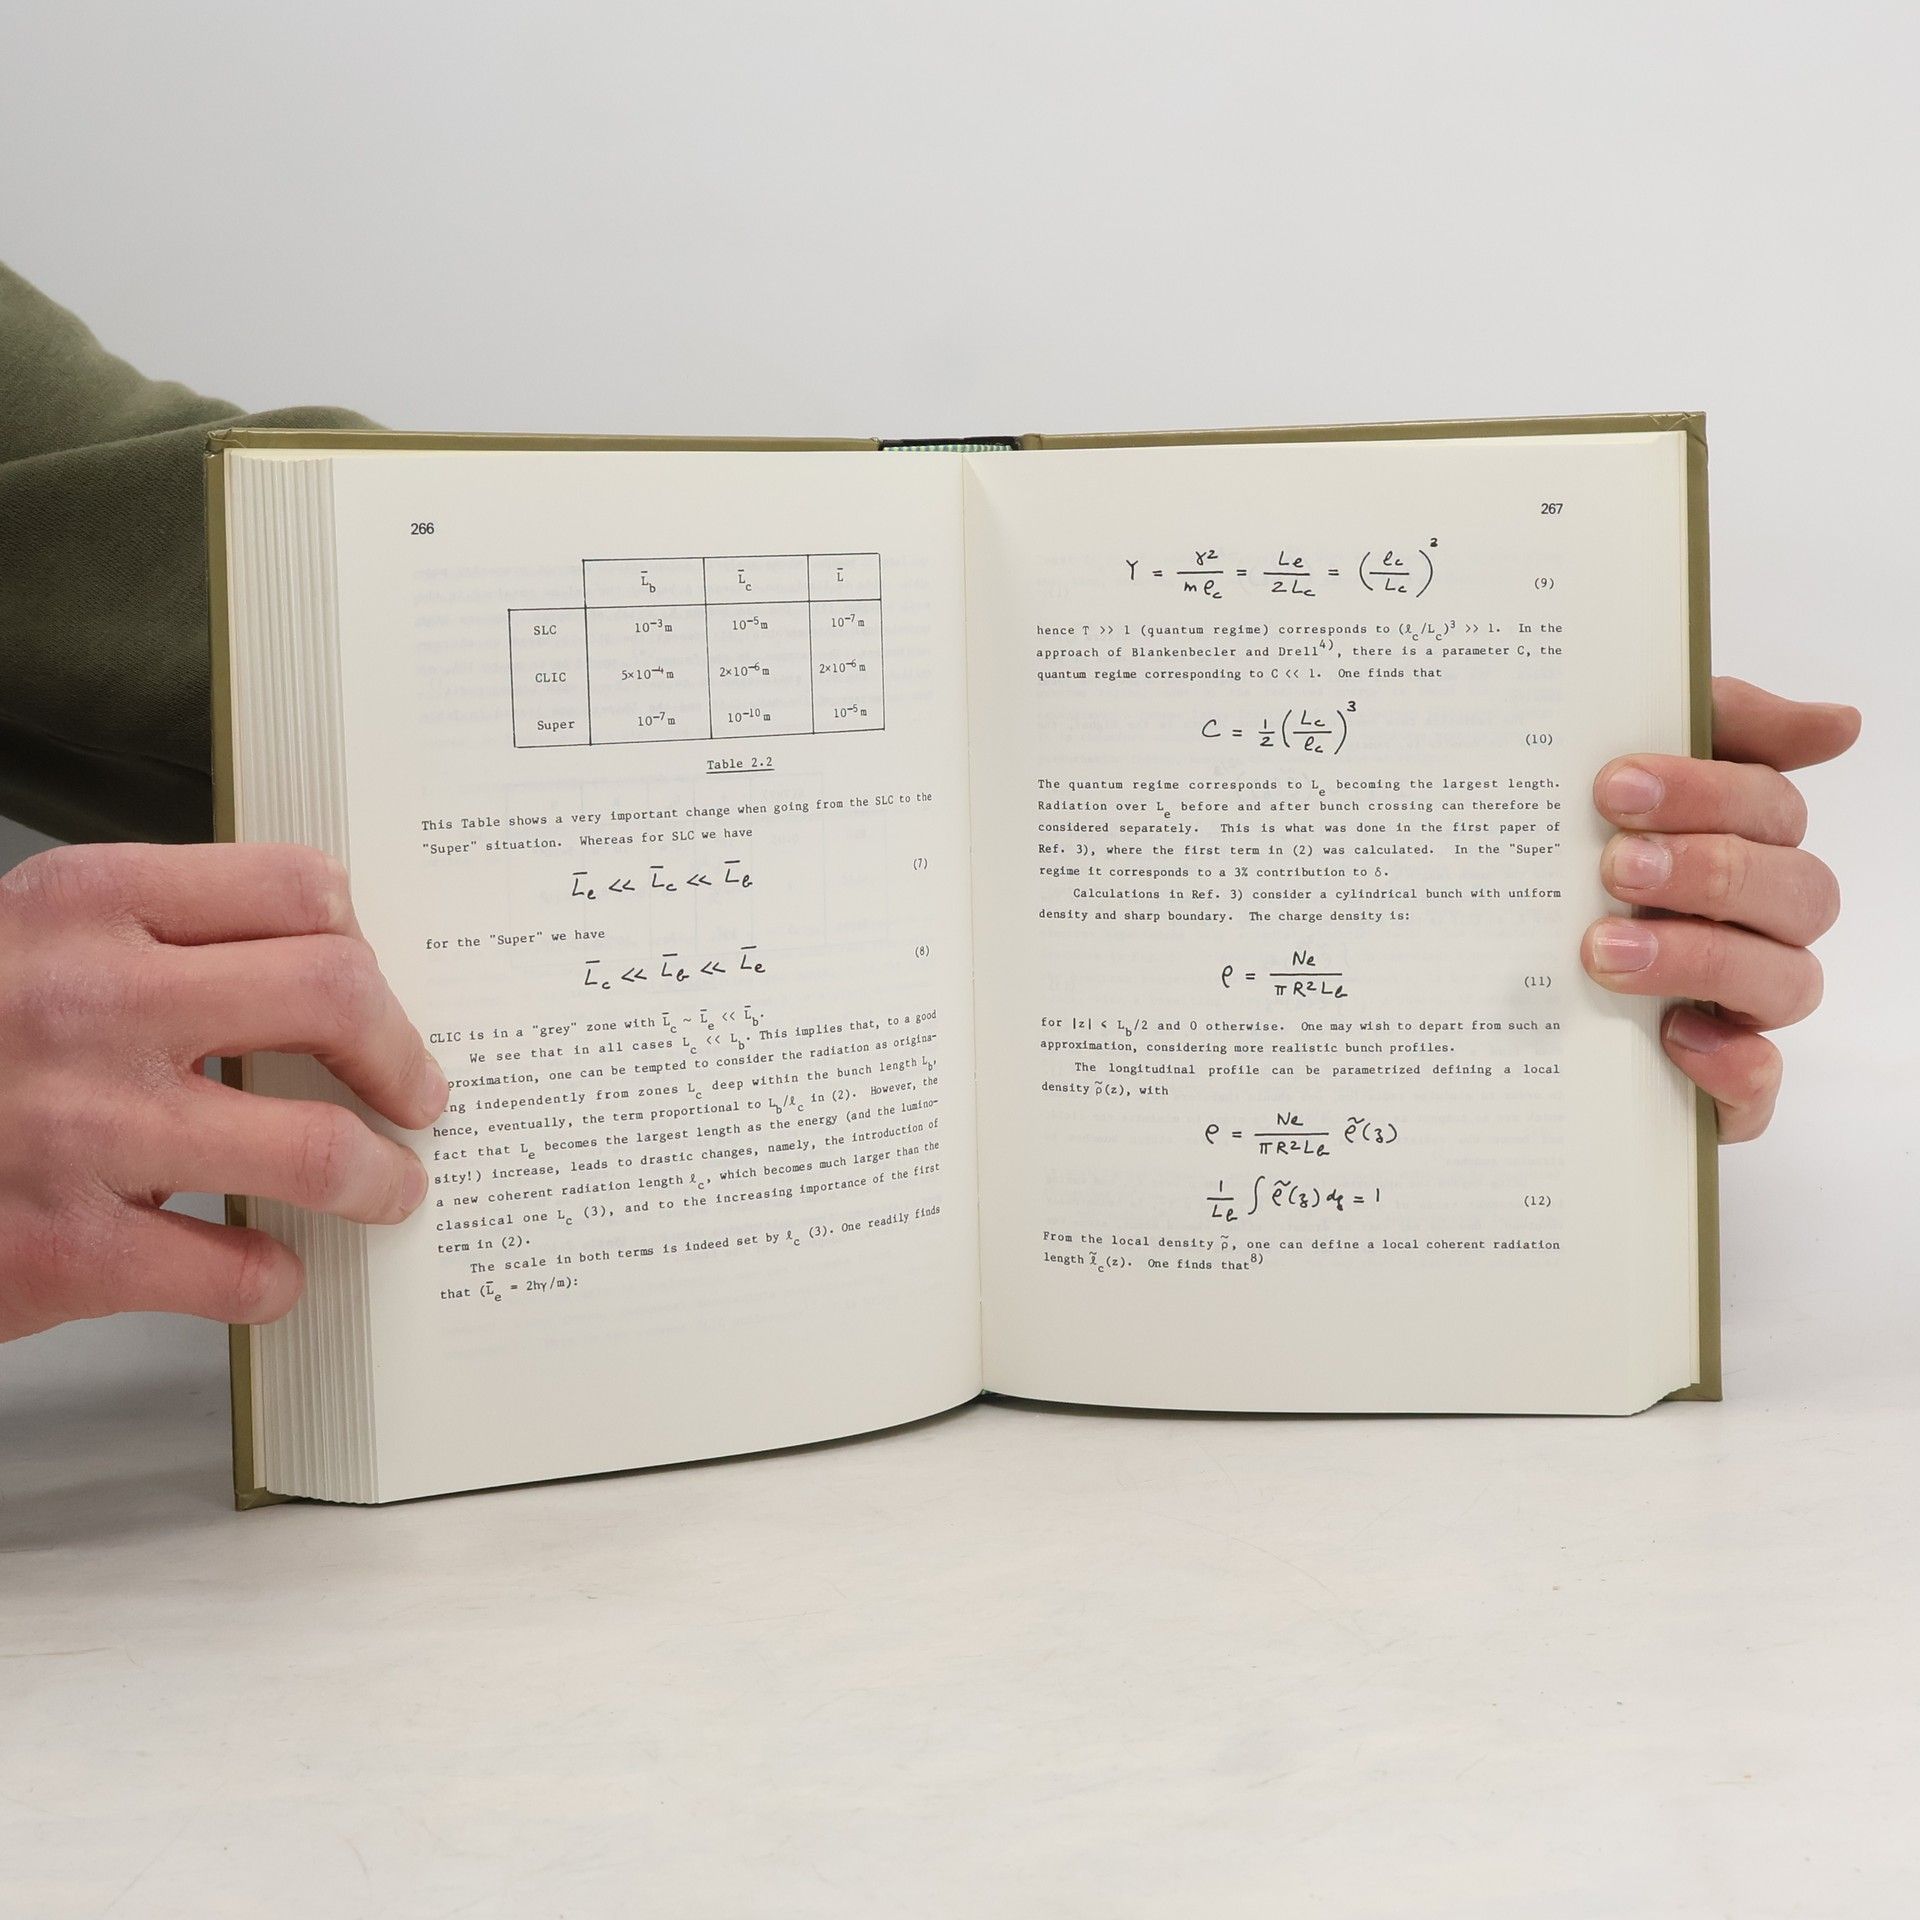 266
L̄b L̄c L̄
SLC 10⁻³m 10⁻⁵m 10⁻⁷m
CLIC 5×10⁻⁴m 2×10⁻⁶m 2×10⁻⁶m
Super 10⁻⁷m 10⁻¹⁰m 10⁻⁵m
Table 2.2
This Table shows a very important change when going from the SLC to the
"Super" situation. Whereas for SLC we have
L̄e << L̄c << L̄b (7)
for the "Super" we have
L̄c << L̄b << L̄e (8)
CLIC is in a "grey" zone with L̄c ~ L̄e << L̄b.
We see that in all cases Lc << Lb. This implies that, to a good
proximation, one can be tempted to consider the radiation as origina-
ing independently from zones Lc deep within the bunch length Lb,
hence, eventually, the term proportional to Lb/ℓc in (2). However, the
fact that Le becomes the largest length as the energy (and the lumino-
sity!) increase, leads to drastic changes, namely, the introduction of
a new coherent radiation length ℓc, which becomes much larger than the
classical one Lc (3), and to the increasing importance of the first
term in (2).
The scale in both terms is indeed set by ℓc (3). One readily finds
that (L̄e = 2hγ/m):
267
Υ = γ²/mρc = Le/2Lc = (ℓc/Lc)³ (9)
hence T >> 1 (quantum regime) corresponds to (ℓc/Lc)³ >> 1. In the
approach of Blankenbecler and Drell⁴⁾, there is a parameter C, the
quantum regime corresponding to C << 1. One finds that
C = 1/2 (Lc/ℓc)³ (10)
The quantum regime corresponds to Le becoming the largest length.
Radiation over Le before and after bunch crossing can therefore be
considered separately. This is what was done in the first paper of
Ref. 3), where the first term in (2) was calculated. In the "Super"
regime it corresponds to a 3% contribution to δ.
Calculations in Ref. 3) consider a cylindrical bunch with uniform
density and sharp boundary. The charge density is:
ρ = Ne/πR²Lb (11)
for |z| < Lb/2 and 0 otherwise. One may wish to depart from such an
approximation, considering more realistic bunch profiles.
The longitudinal profile can be parametrized defining a local
density ρ̃(z), with
ρ = Ne/πR²Lb ρ̃(z)
1/Lb ∫ ρ̃(z) dz = 1 (12)
From the local density ρ̃, one can define a local coherent radiation
length ℓ̃c(z). One finds that⁸⁾